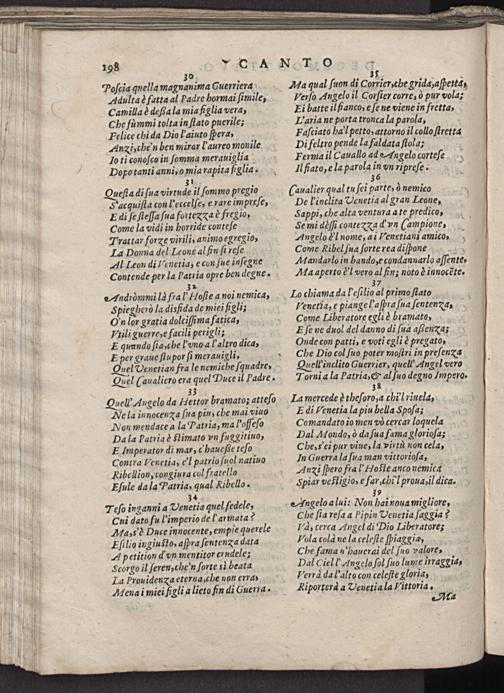 198 CANTO
30
Poscia quella magnanima Guerriera
Adulta è fatta al Padre hormai simile,
Camilla è desta la mia figlia vera,
Che fummi tolta in stato puerile;
Felice chi da Dio l'aiuto spera,
Anzi, che'n ben mirar l'aureo monile
Io ti conosco in somma merauiglia
Dopo tanti anni, o mia rapita figlia.
31
Questa di sua virtude il sommo pregio
S'acquista con l'eccelse, e rare imprese,
E di se stessa sua fortezza è fregio,
Come la vidi in horride contese
Trattar forze virili, animo egregio,
La Donna del Leone al fin si rese
Al Leon di Venetia, e con sue insegne
Contende per la Patria opre ben degne.
32
Andrommi là fra l'Hoste a noi nemica,
Spiegherò la disfida de miei figli;
O'n lor gratia dolcissima fatica,
Vtili guerre, e facili perigli;
E quando sia, che l'vno a l'altro dica,
E per graue stupor si merauigli,
Quel Venetian fra le nemiche squadre,
Quel Caualiero era quel Duce il Padre.
33
Quell'Angelo da Hettor bramato; atteso
Ne la innocenza sua piu, che mai viuo
Non mendace a la Patria, ma l'offeso
Da la Patria è stimato vn fuggitiuo,
E Imperator di mar, c'hauesse teso
Contra Venetia, e'l patrio suol natiuo
Ribellion, congiura col fratello
Esule da la Patria, qual Ribello.
34
Teso inganni a Venetia quel fedele,
Cui dato fu l'imperio de l'armata?
Ma, s'è Duce innocente, empie querele
Esilio ingiusto, aspra sentenza data
A petition d'vn mentitor crudele;
Scorgo il seren, che'n sorte sì beata
La Prouidenza eterna, che non erra,
Mena i miei figli a lieto fin di Guerra.
35
Ma qual suon di Corrier, che grida, aspetta,
Verso Angelo il Corsier corre, ò pur vola;
Ei batte il fianco, e se ne viene in fretta,
L'aria ne porta tronca la parola,
Fasciato ha'l petto, attorno il collo stretta
Di feltro pende la saldata stola;
Ferma il Cauallo ad Angelo cortese
Il fiato, e la parola in vn riprese.
36
Caualier qual tu sei parte, ò nemico
De l'inclita Venetia al gran Leone,
Sappi, che alta ventura a te predico,
Se mi dessi contezza d'vn Campione,
Angelo è'l nome, ai Venetiani amico,
Come Ribel sua sorte rea dispone
Mandarlo in bando, e condannarlo assente,
Ma aperto è'l vero al fin; noto è innocēte.
37
Lo chiama da l'esilio al primo stato
Venetia, e piange l'aspra sua sentenza,
Come Liberatore egli è bramato,
E se ne duol del danno di sua assenza;
Onde con patti, e voti egli è pregato,
Che Dio col suo poter mostri in presenza
Quell'inclito Guerrier, quell'Angel vero
Torni a la Patria, & al suo degno Impero.
38
La mercede è thesoro, a chi'l riuela,
E di Venetia la piu bella Sposa;
Comandato io men vò cercar loquela
Dal Mondo, ò da sua fama gloriosa;
Che, s'ei pur viue, la virtù non cela,
In Guerra la sua man vittoriosa,
Anzi spero fra l'Hoste anco nemica
Spiar vestigio, e far, chi'l proua, il dica.
39
Angelo a lui: Non hai noua migliore,
Che sia resa a Pipin Venetia saggia?
Và, cerca Angel di Dio Liberatore;
Vola colà ne la celeste spiaggia,
Che fama n'hauerai del suo valore,
Dal Ciel l'Angelo sol suo lume irraggia,
Verrà da l'alto con celeste gloria,
Riporterà a Venetia la Vittoria.
Ma